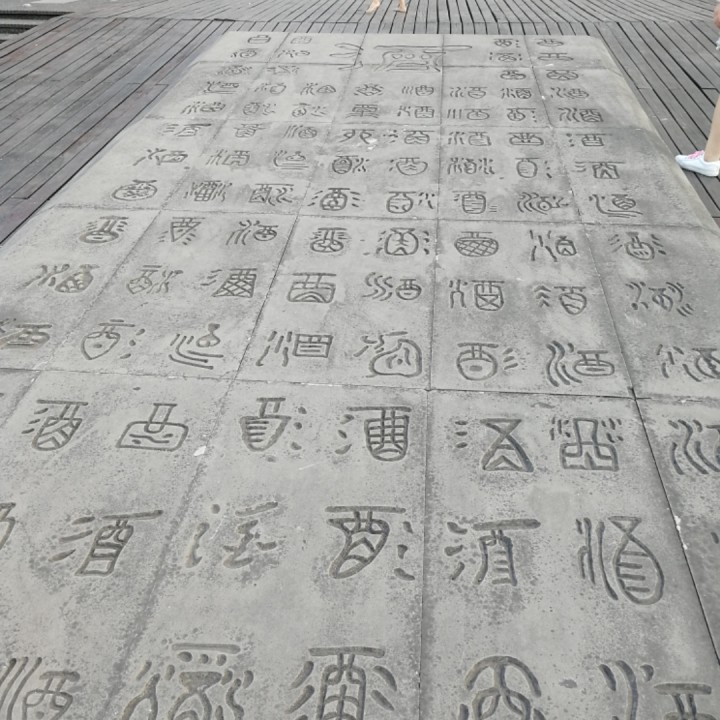 酒酒酒酒
酒酒酒酒
酒酒酒酒
酒酒酒酒酒酒酒酒
酒酒酒酒酒酒酒酒
酒酒酒酒酒酒酒酒
酒酒酒酒酒酒酒酒
酒酒酒酒酒酒酒酒
酒酒酒酒酒酒酒酒
酒酒酒酒酒酒酒酒
酒酒酒酒酒酒酒酒
酒酒酒酒酒酒酒
酒酒酒酒酒酒
酒酒酒酒酒